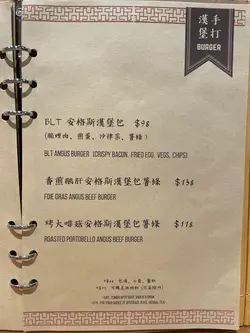 漢堡
手打
BURGER
BLT 安格斯漢堡包 $98
(脆煙肉、煎蛋、沙律菜、薯條)
BLT ANGUS BURGER (CRISPY BACON, FRIED EGG, VEGS, CHIPS)
香煎鵝肝安格斯漢堡包薯條 $138
FOIE GRAS ANGUS BEEF BURGER
烤大啡菇安格斯漢堡包薯條 $118
ROASTED PORTOBELLO ANGUS BEEF BURGER